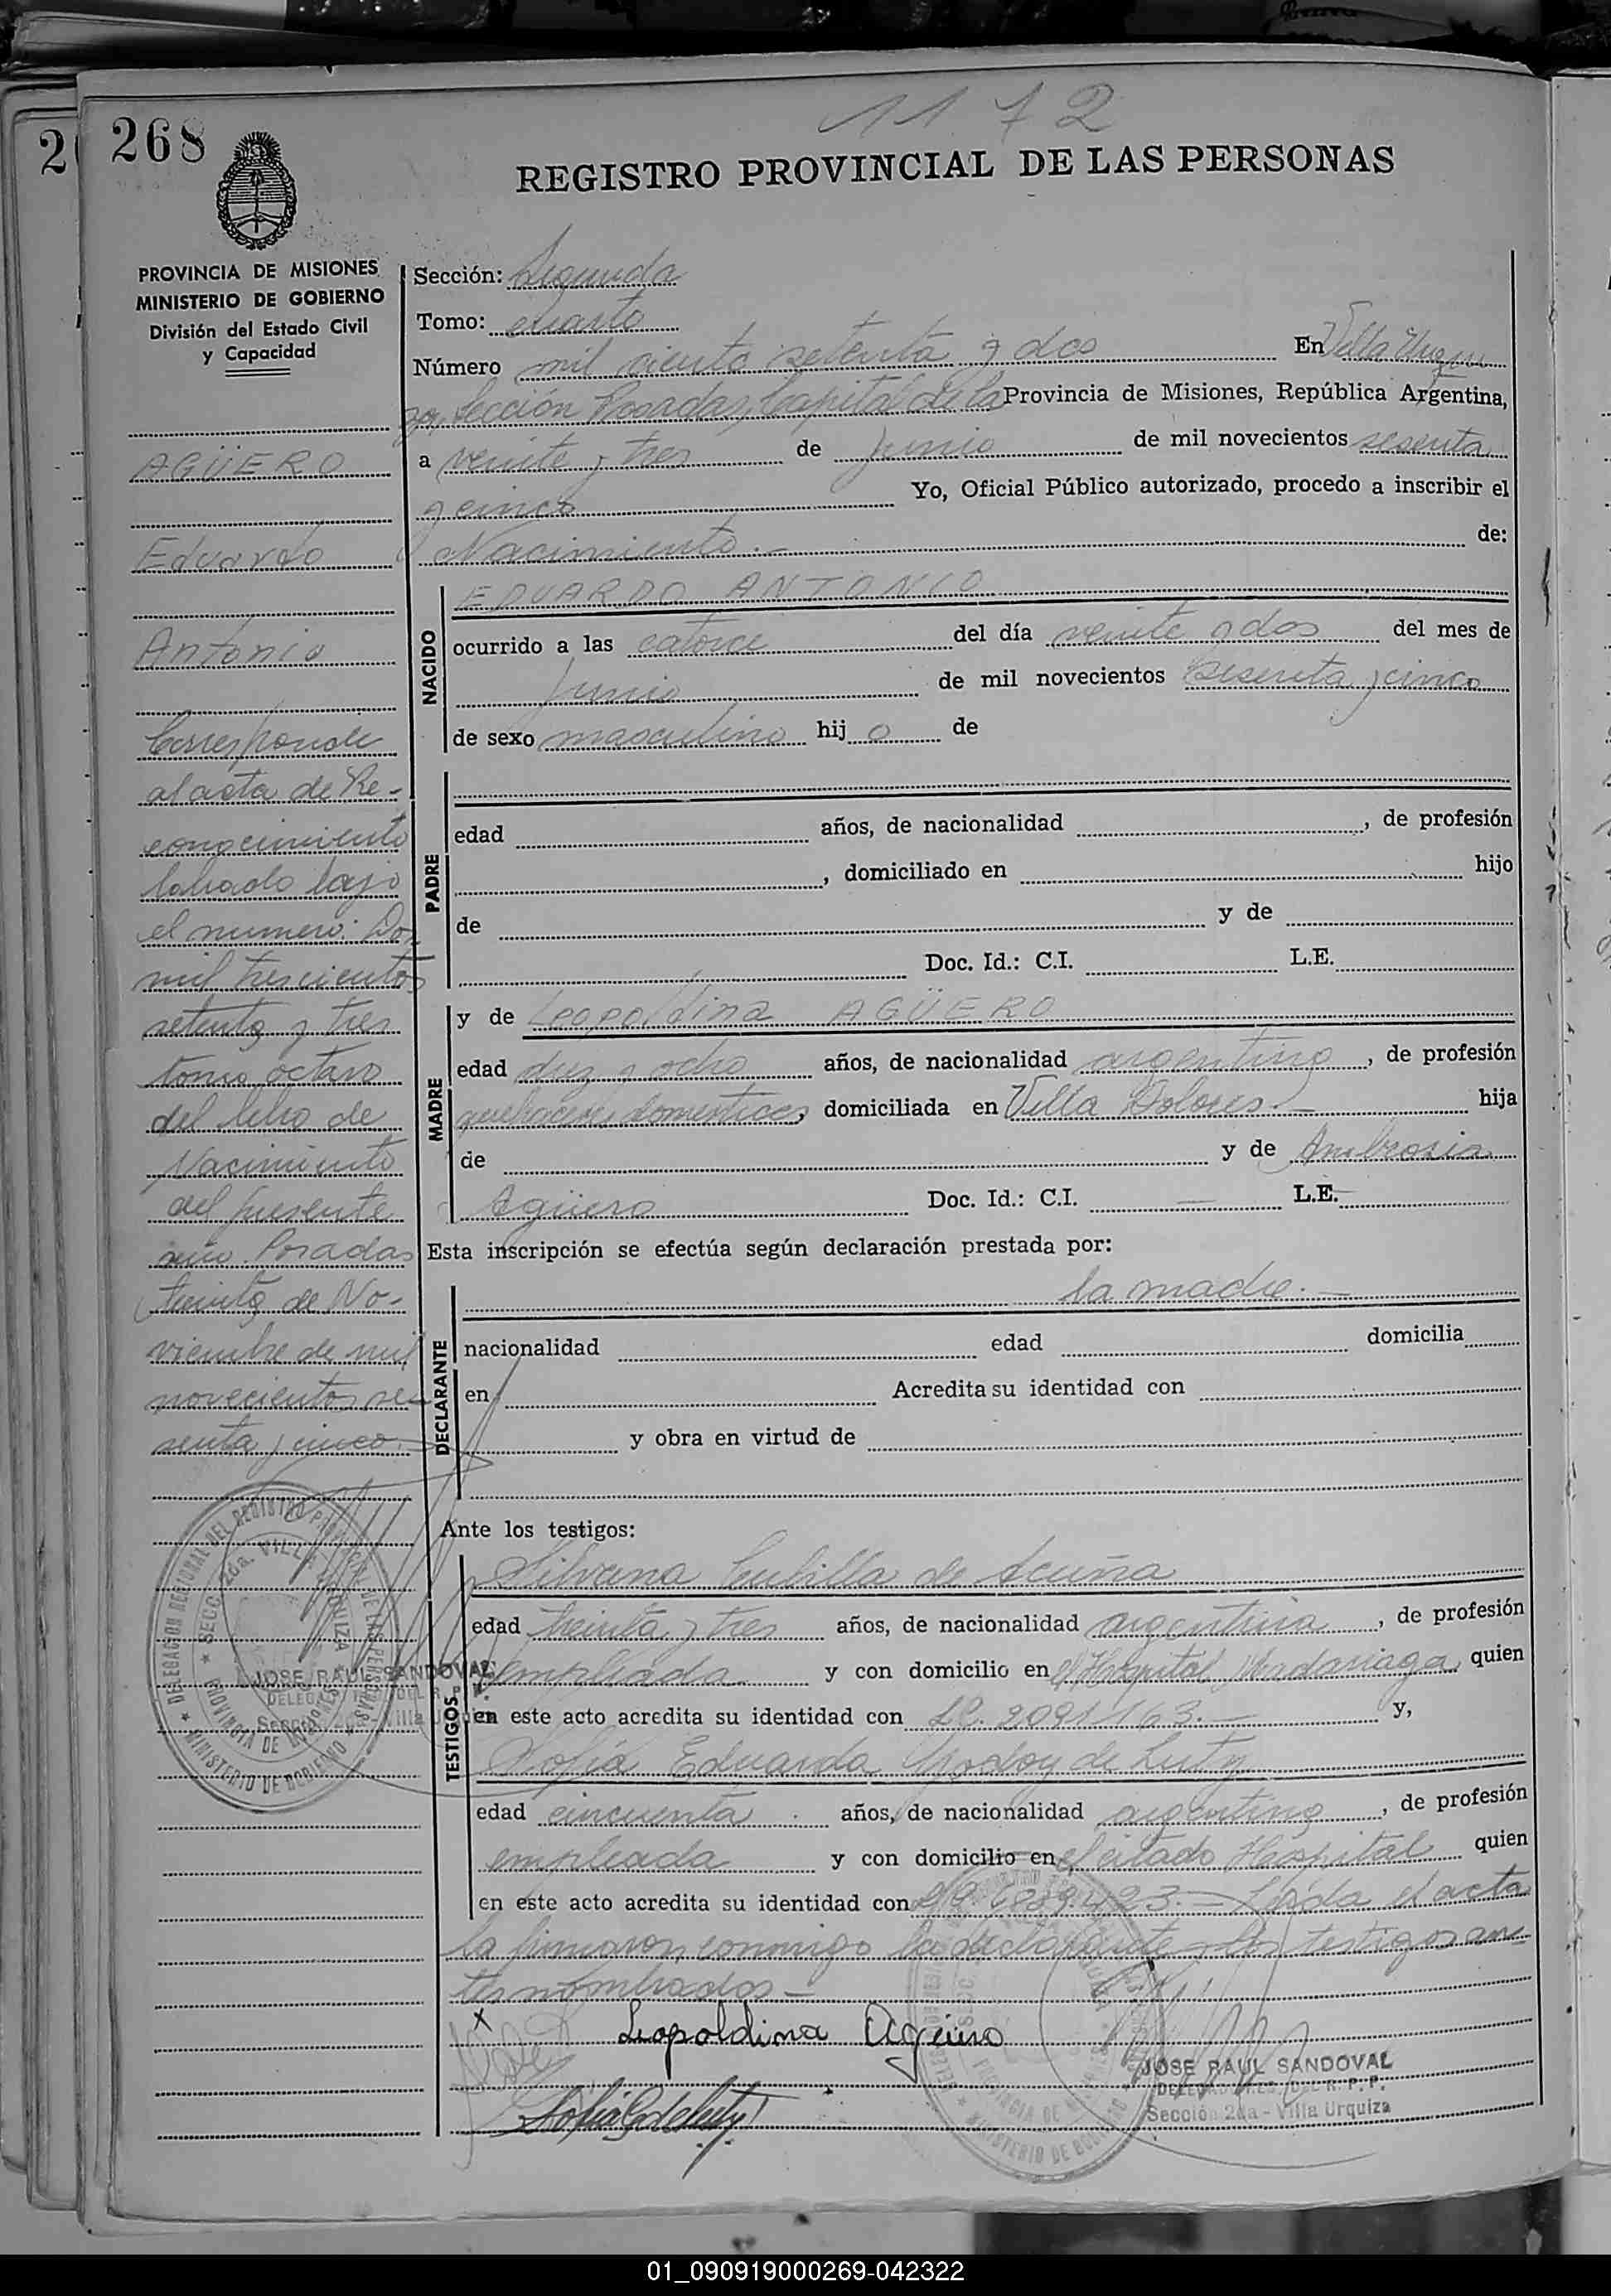 1172
268
REGISTRO PROVINCIAL DE LAS PERSONAS
PROVINCIA DE MISIONES
MINISTERIO DE GOBIERNO
División del Estado Civil
y Capacidad
AGÜERO
Eduardo
Antonio
Corresponde
al acta de Re-
conocimiento
labrado bajo
el numero: Dos
mil trescientos
setenta y tres
tomo octavo
del libro de
Nacimiento
del presente
año. Posadas
treinta de No-
viembre de mil
novecientos se-
senta y cinco.
Sección: Segunda
Tomo: cuarto
Número mil ciento setenta y dos En Villa Urqui
za, Sección Posadas, Capital de la Provincia de Misiones, República Argentina,
a veinte y tres de Junio de mil novecientos sesenta
y cinco Yo, Oficial Público autorizado, procedo a inscribir el
Nacimiento.- de:
NACIDO
EDUARDO ANTONIO
ocurrido a las catorce del día veinte y dos del mes de
Junio de mil novecientos sesenta y cinco
de sexo masculino hijo de
PADRE
edad años, de nacionalidad , de profesión
, domiciliado en hijo
de y de
Doc. Id.: C.I. L.E.
MADRE
y de Leopoldina AGÜERO
edad diez y ocho años, de nacionalidad argentina, de profesión
quehaceres domésticos, domiciliada en Villa Dolores.- hija
de y de Ambrosia
Agüero Doc. Id.: C.I. — L.E. —
Esta inscripción se efectúa según declaración prestada por:
DECLARANTE
la madre.-
nacionalidad edad domicilia
en Acredita su identidad con
y obra en virtud de
Ante los testigos:
TESTIGOS
Silvana Cubilla de Acuña
edad treinta y tres años, de nacionalidad argentina, de profesión
empleada y con domicilio en el Hospital Madariaga, quien
en este acto acredita su identidad con LC. 2091163.- y,
Sofía Eduarda Godoy de Luty
edad cincuenta años, de nacionalidad argentina, de profesión
empleada y con domicilio en el citado Hospital quien
en este acto acredita su identidad con Leída el acta
la firmaron conmigo la declarante y los testigos an-
tes nombrados.-
x
Leopoldina Agüero
JOSE RAUL SANDOVAL
DELEGADO REG. DEL R. P. P.
Sección 2da - Villa Urquiza
DELEGACION REGIONAL DEL REGISTRO PROVINCIAL DE LAS PERSONAS
SECC. 2da. VILLA URQUIZA
PROVINCIA DE MISIONES
MINISTERIO DE GOBIERNO
JOSE RAUL SANDOVAL
01_090919000269-042322